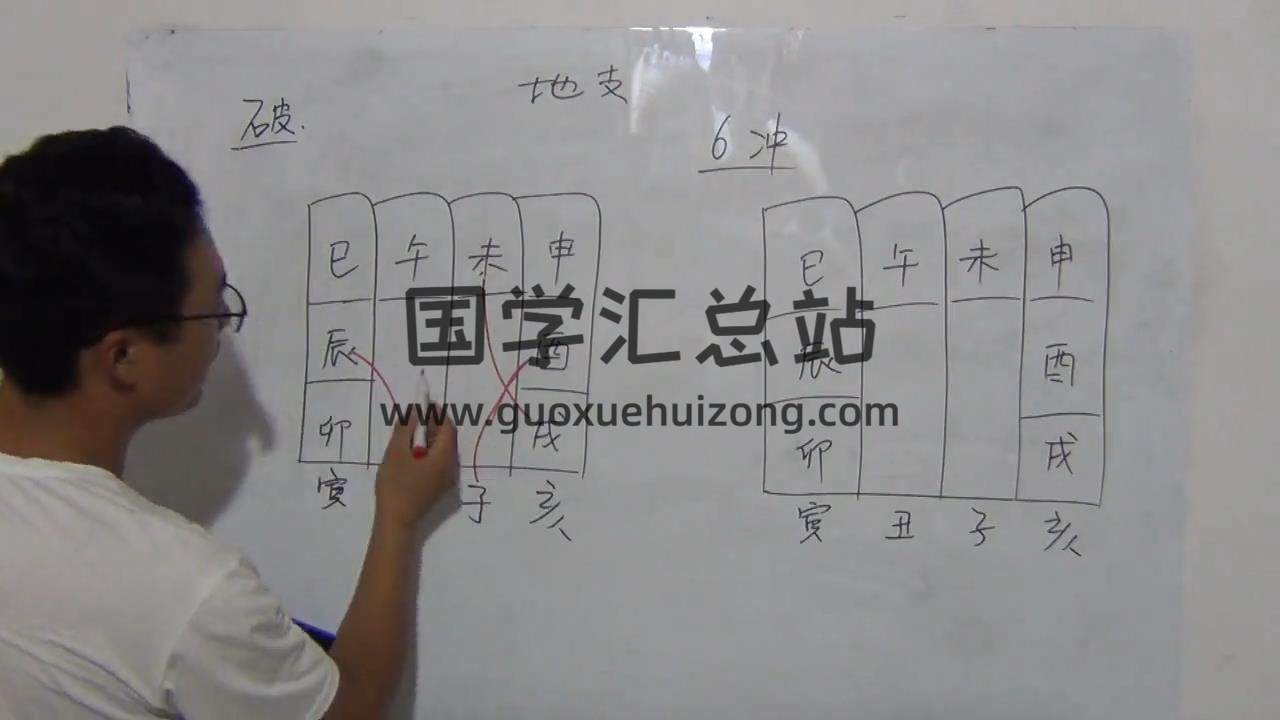 地支
破.
6冲
巳 午 未 申
辰 酉
卯 戌
寅 子 亥
巳 午 未 申
辰 酉
卯 戌
寅 丑 子 亥
国学汇总站
www.guoxuehuizong.com